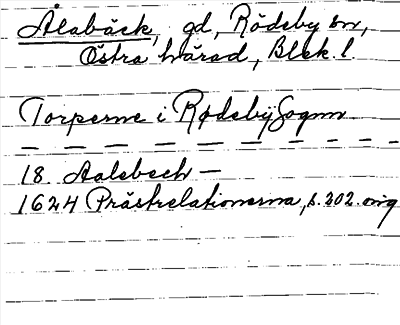 Ålabäck, gd, Rödeby sn,
Östra härad, Blek. l.
Torperne i Rødebÿ Sognn
18. Aalebech —
1624 Prästrelationerna, s. 202. orig